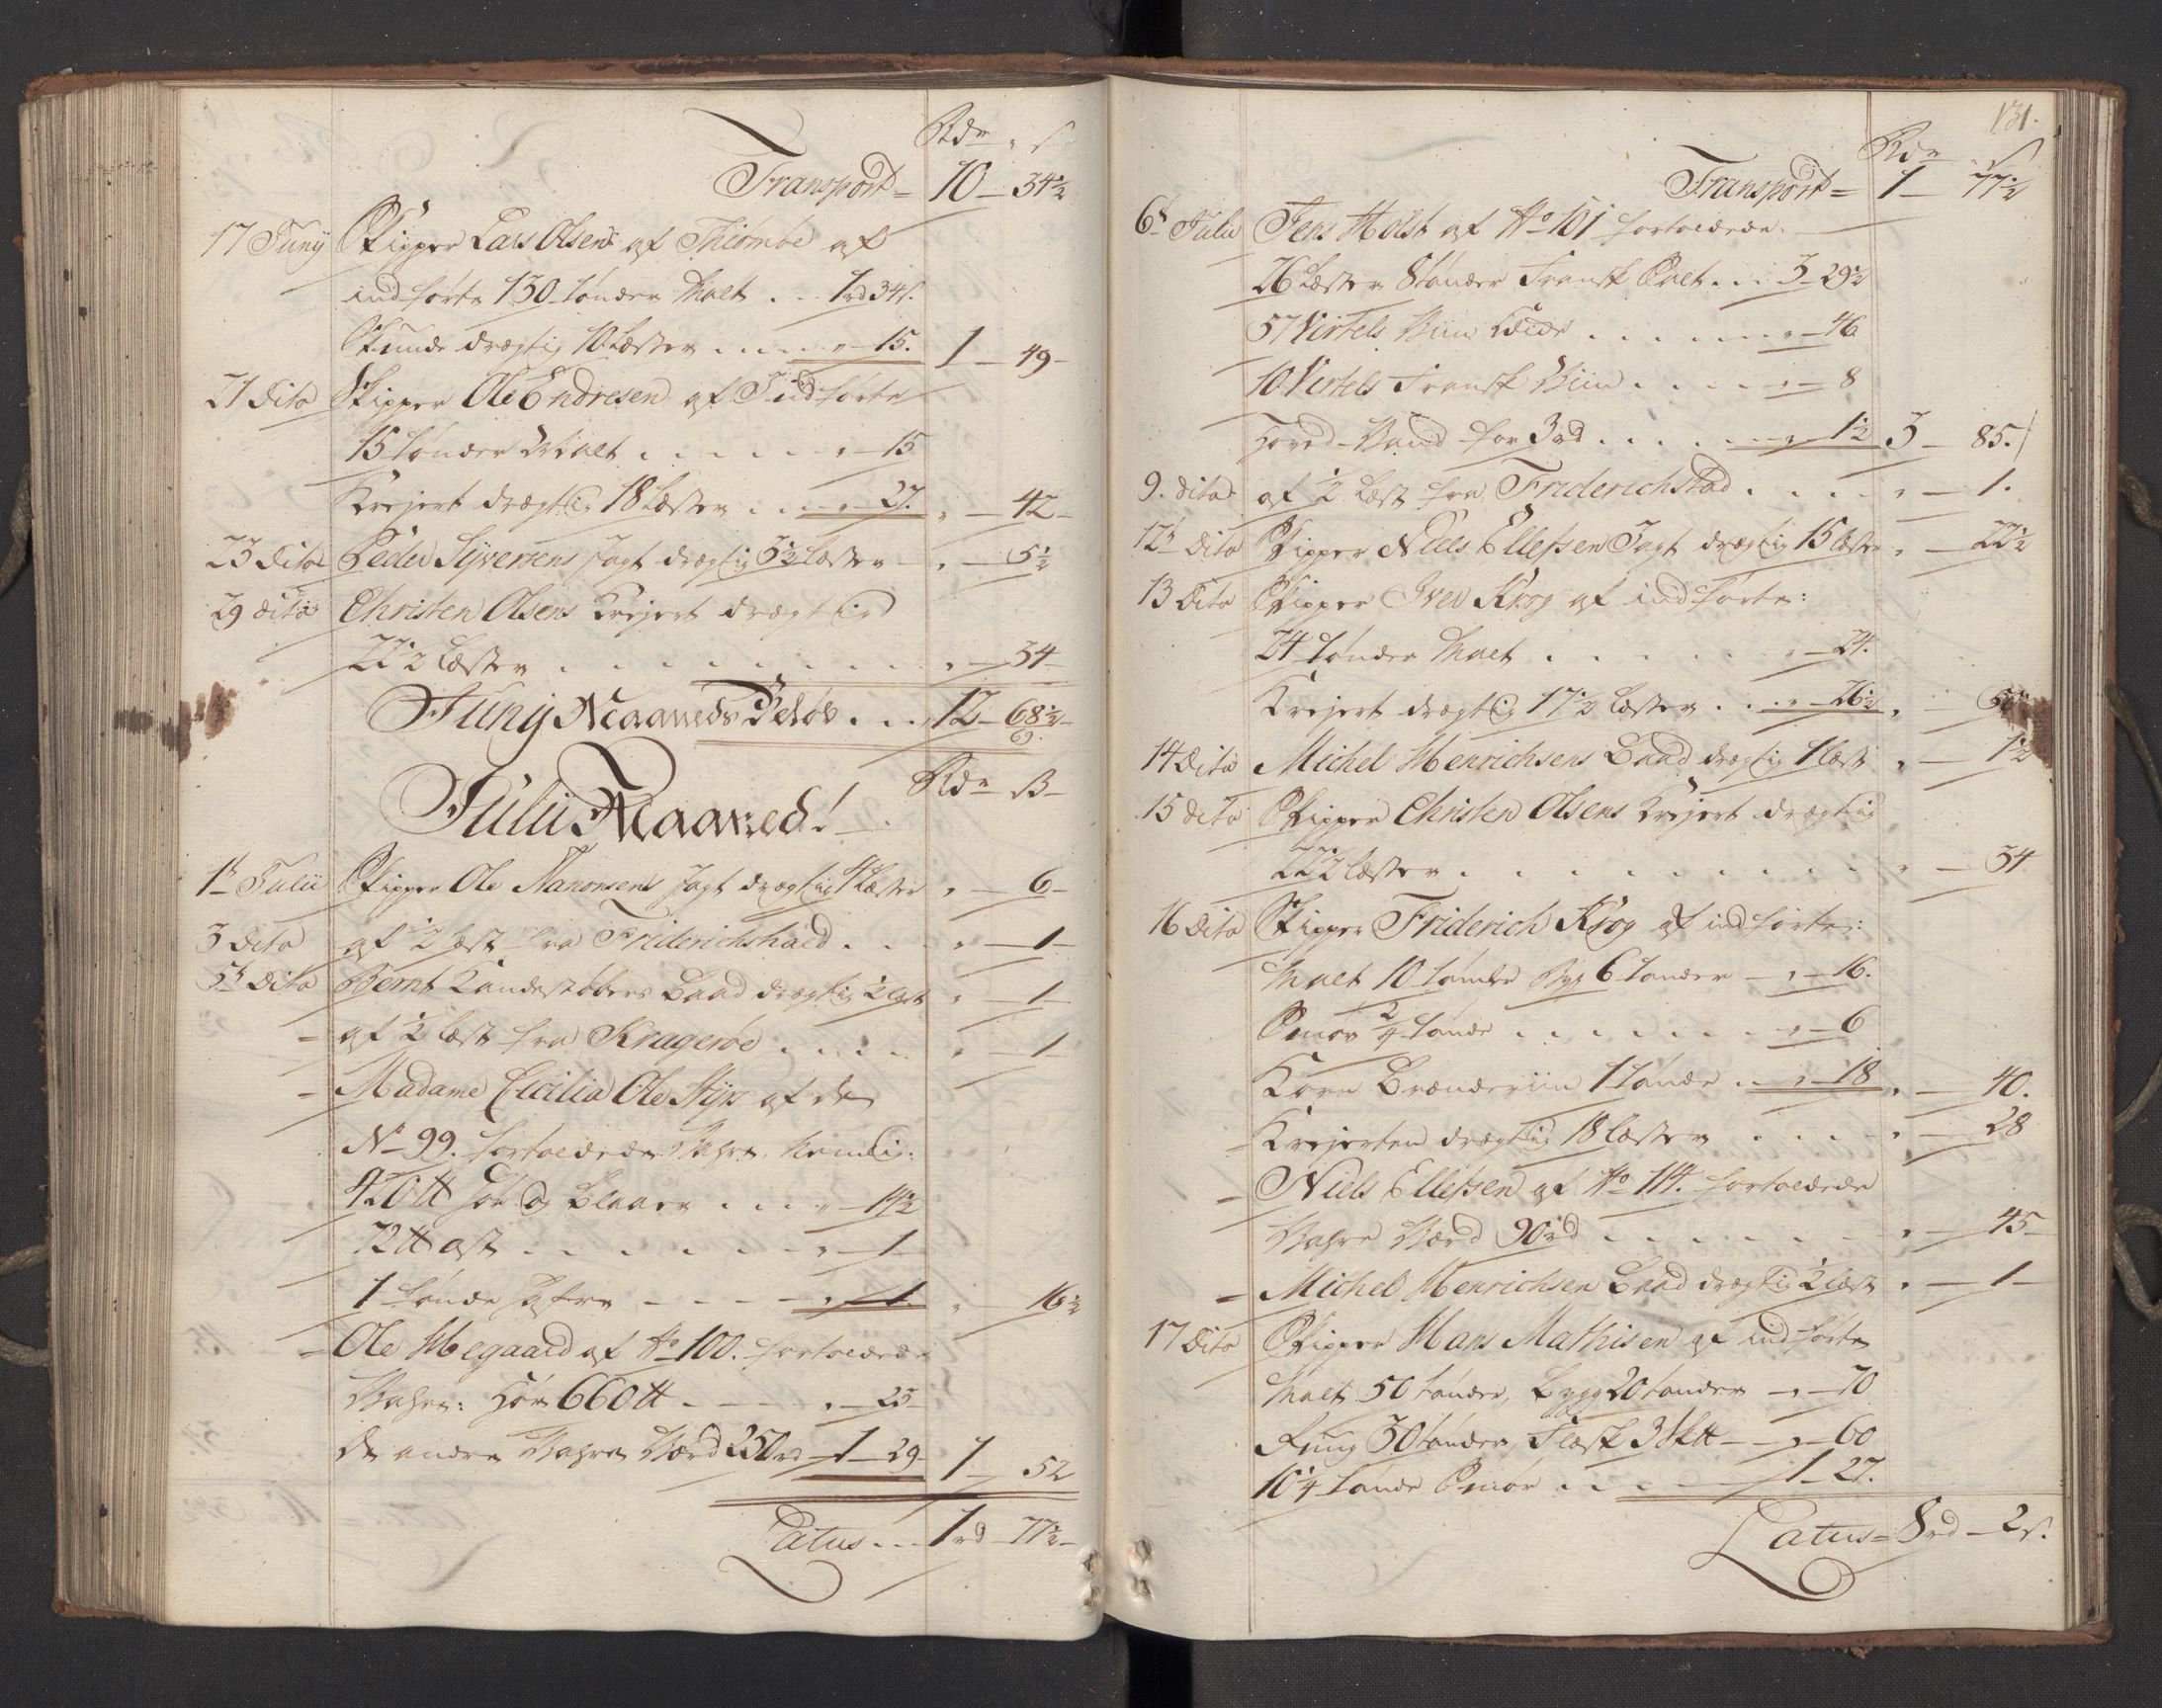 Rdr ß
Transport = 10 – 34½
17 Junij Skipper Lars Olsen af Thiømøe af
indførte 130 tønder Malt . . 1rd 34ß.
Skuude drægtig 10 Læster . . . . „ – 15. 1 – 49 –
21 dito Skipper Ole Endresen af Indførte
15 tønder Malt . . . . . . „ – 15
Krejert drægtig 18 Læster . . . „ – 27. „ – 42 –
23 dito Peder Syversens Jagt drægtig 3½ Læster – „ – 5½
29 dito Christen Olsens Krejert drægtig
22½ Læster . . . . . . . . . . „ – 34 –
Junij Maaneds Beløb . . . 12 – 68½ –
69.
Rdr – ß –
Julii Maaned!
1t Julii Skipper Ole Nanonsens Jagt drægtig 4 Læster „ – 6 –
3 dito af ½ Læst fra Friderichshald . . . „ – 1 –
5t dito Bernt Kandestøbers Baad drægtig ½ Læst „ – 1 –
– af ½ Læst fra Kragerøe . . . . . „ – 1
– Madame Cicilia Ole Styrs af de
No 99. fortoldede Vahre. nemlig:
420 ℔ Hør og Blaar . . . „ – 14½
72 ℔ ost . . . . . . . „ – 1
1 tønde – – – – „ – 1. „ – 16½
– Ole Hegaard af No 100. fortoldede
Vahre: Hør 660 ℔ – – – – „ – 23 –
de andre Vahre Værd 250 rd – 1 – 29 – 1 – 52
Latus . . . 1 rd – 77½ –
131.
Rdr ß
Transport = 1 – 77½
6t Julii Jens Holst af No 101 fortoldede
26 Læster 8 tønder Fransk Salt . . . 3 – 29½
57 Virtels Viin Edike . . . . . . . „ – 46
10 Virtels Fransk Viin . . . . . „ – 8
Hoved-Vand for 3 rd . . . . . . „ – 1½ 3 – 85.
9. dito af ½ Læst fra Friderichstad . . . . „ – 1.
12t dito Skipper Niels Ellefsen Jagt drægtig 15 Læster „ – 22½
13 dito Skipper Iver Krog af indførte:
24 tønder Malt . . . . . . „ – 24.
Krejert drægtig 17½ Læster . . . „ – 26½ „ –
14 dito Michel Henrichsens Baad drægtig 1 Læst „ – 1½
15 dito Skipper Christen Olsens Krejert drægtig
22½ Læster . . . . . . . . . . „ – 34
16 dito Skipper Friderich Krog af indførte:
Malt 10 tønder Byg 6 tønder – „ – 16.
Smør 2/4 tønde . . . . . . . „ – 6
Korn Brændeviin 1 tønde . . „ – 18 „ – 40.
– Krejerten drægtig 18 Læster . . . . „ – 28
– Niels Ellefsen af No 114. fortoldede
Vahre Værd 90 rd . . . . . . . „ – 45 –
– Michel Henrichsen Baad drægtig ½ Læst „ – 1 –
17 dito Skipper Hans Mathisen af indførte
Malt 50 tønder, Bygg 20 tønder – „ – 70
Rug 30 tønder, Flæsk 3 Sk℔ – „ – 60
10¼ tønde Smør . . . . 1 – 27.
Latus = 8 rd – 2 ß.